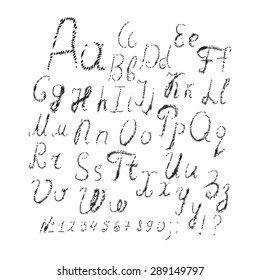 Aa Cc Ee
Bb Dd Ff
Gg Hh Ii Jj Kk Ll
Mm Nn Oo Pp Qq
Rr Ss Tt Uu
Vv Ww Xx Yy Zz
№1234567890,;:!?
shutterstock.com · 289149797